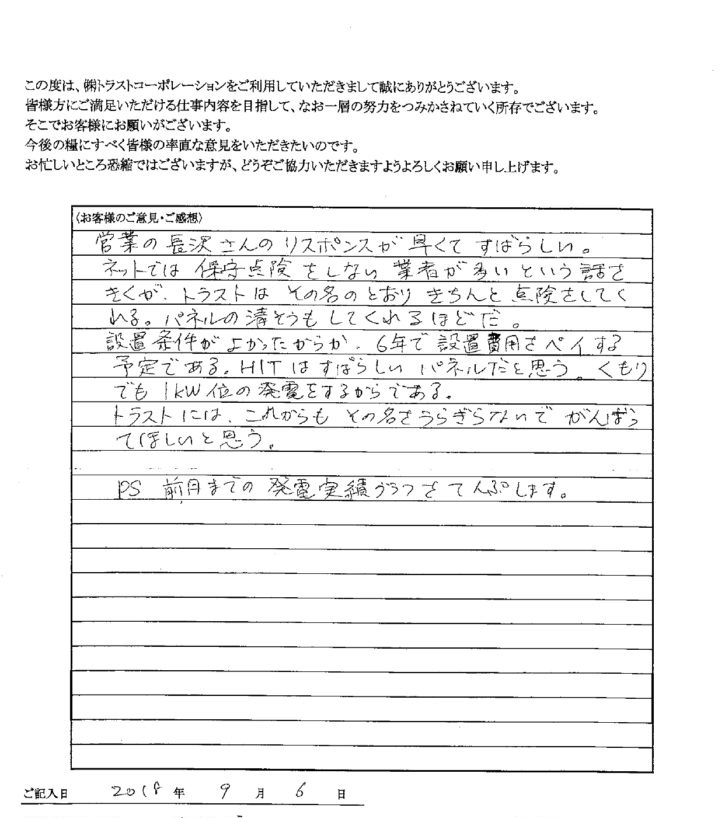 この度は、㈱トラストコーポレーションをご利用していただきまして誠にありがとうございます。
皆様方にご満足いただける仕事内容を目指して、なお一層の努力をつみかさねていく所存でございます。
そこでお客様にお願いがございます。
今後の糧にすべく皆様の率直な意見をいただきたいのです。
お忙しいところ恐縮ではございますが、どうぞご協力いただきますようよろしくお願い申し上げます。
(お客様のご意見・ご感想)
営業の長沢さんのリスポンスが早くてすばらしい。
ネットでは保守点険をしない業者が多いという話を
きくが、トラストはその名のとおりきちんと点険をしてく
れる。パネルの清そうもしてくれるほどだ。
設置条件がよかったからか、6年で設置費用をペイする
予定である。HITはすばらしいパネルだと思う。くもり
でも1kW位の発電をするからである。
トラストには、これからもその名をうらぎらないでがんばっ
てほしいと思う。
PS 前月までの発電実績グラフをてんぷします。
ご記入日 2018年 9月 6日